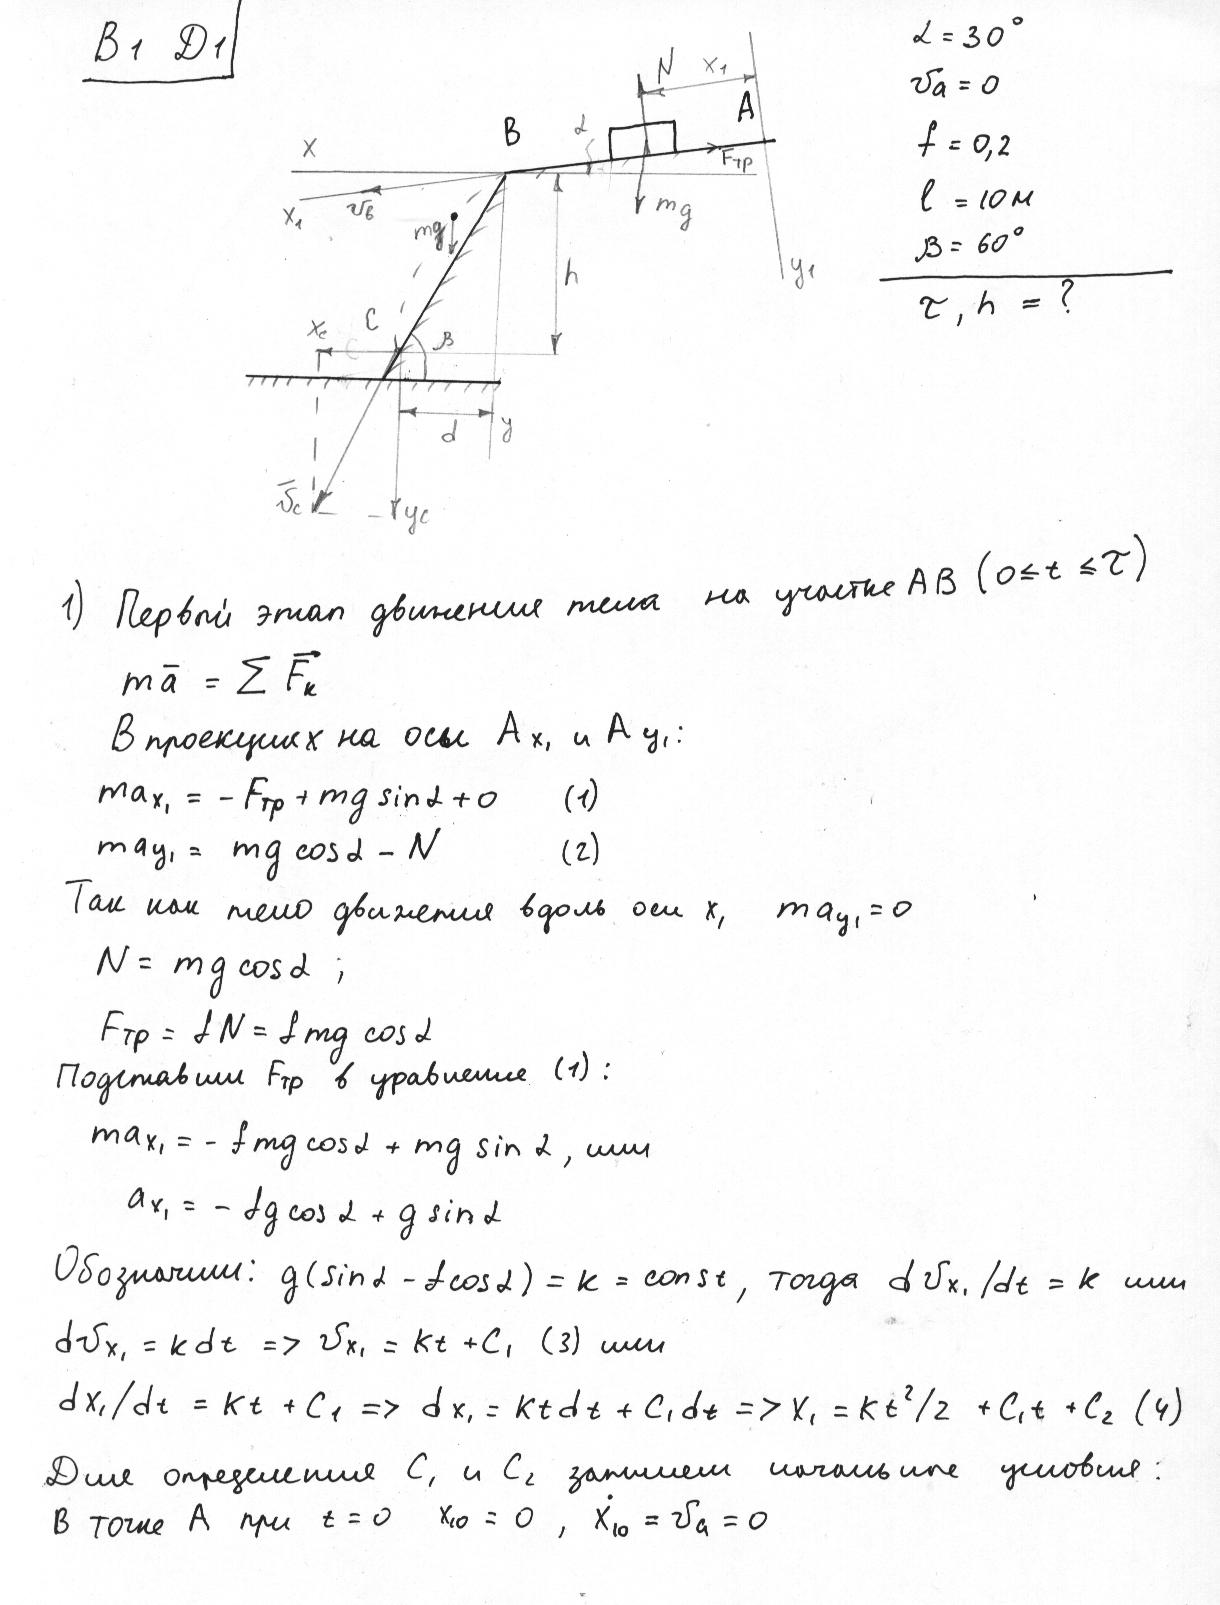 В1 D1
α = 30°
Va = 0
f = 0,2
l = 10 м
β = 60°
τ, h = ?
N
x₁
A
B
α
x
Fтр
x₁
Vв
mg
mg
y₁
h
C
xc
β
d
y
V̄c
yc
1) Первый этап движения тела на участке AB (0 ≤ t ≤ τ)
mā = Σ F⃗к
В проекциях на осы Ax₁ и Ay₁:
max₁ = - Fтр + mg sinα + 0 (1)
may₁ = mg cosα - N (2)
Так как тело движения вдоль оси x₁ may₁ = 0
N = mg cosα ;
Fтр = fN = fmg cosα
Подставим Fтр в уравнение (1) :
max₁ = - fmg cosα + mg sinα, или
ax₁ = - fg cosα + g sinα
Обозначим: g(sinα - fcosα) = k = const, тогда dVx₁/dt = k или
dVx₁ = kdt => Vx₁ = kt + C₁ (3) или
dx₁/dt = kt + C₁ => dx₁ = ktdt + C₁dt => x₁ = kt²/2 + C₁t + C₂ (4)
Для определения C₁ и C₂ запишем начальные условия:
В точке A при t = 0 x₁₀ = 0 , ẋ₁₀ = Va = 0